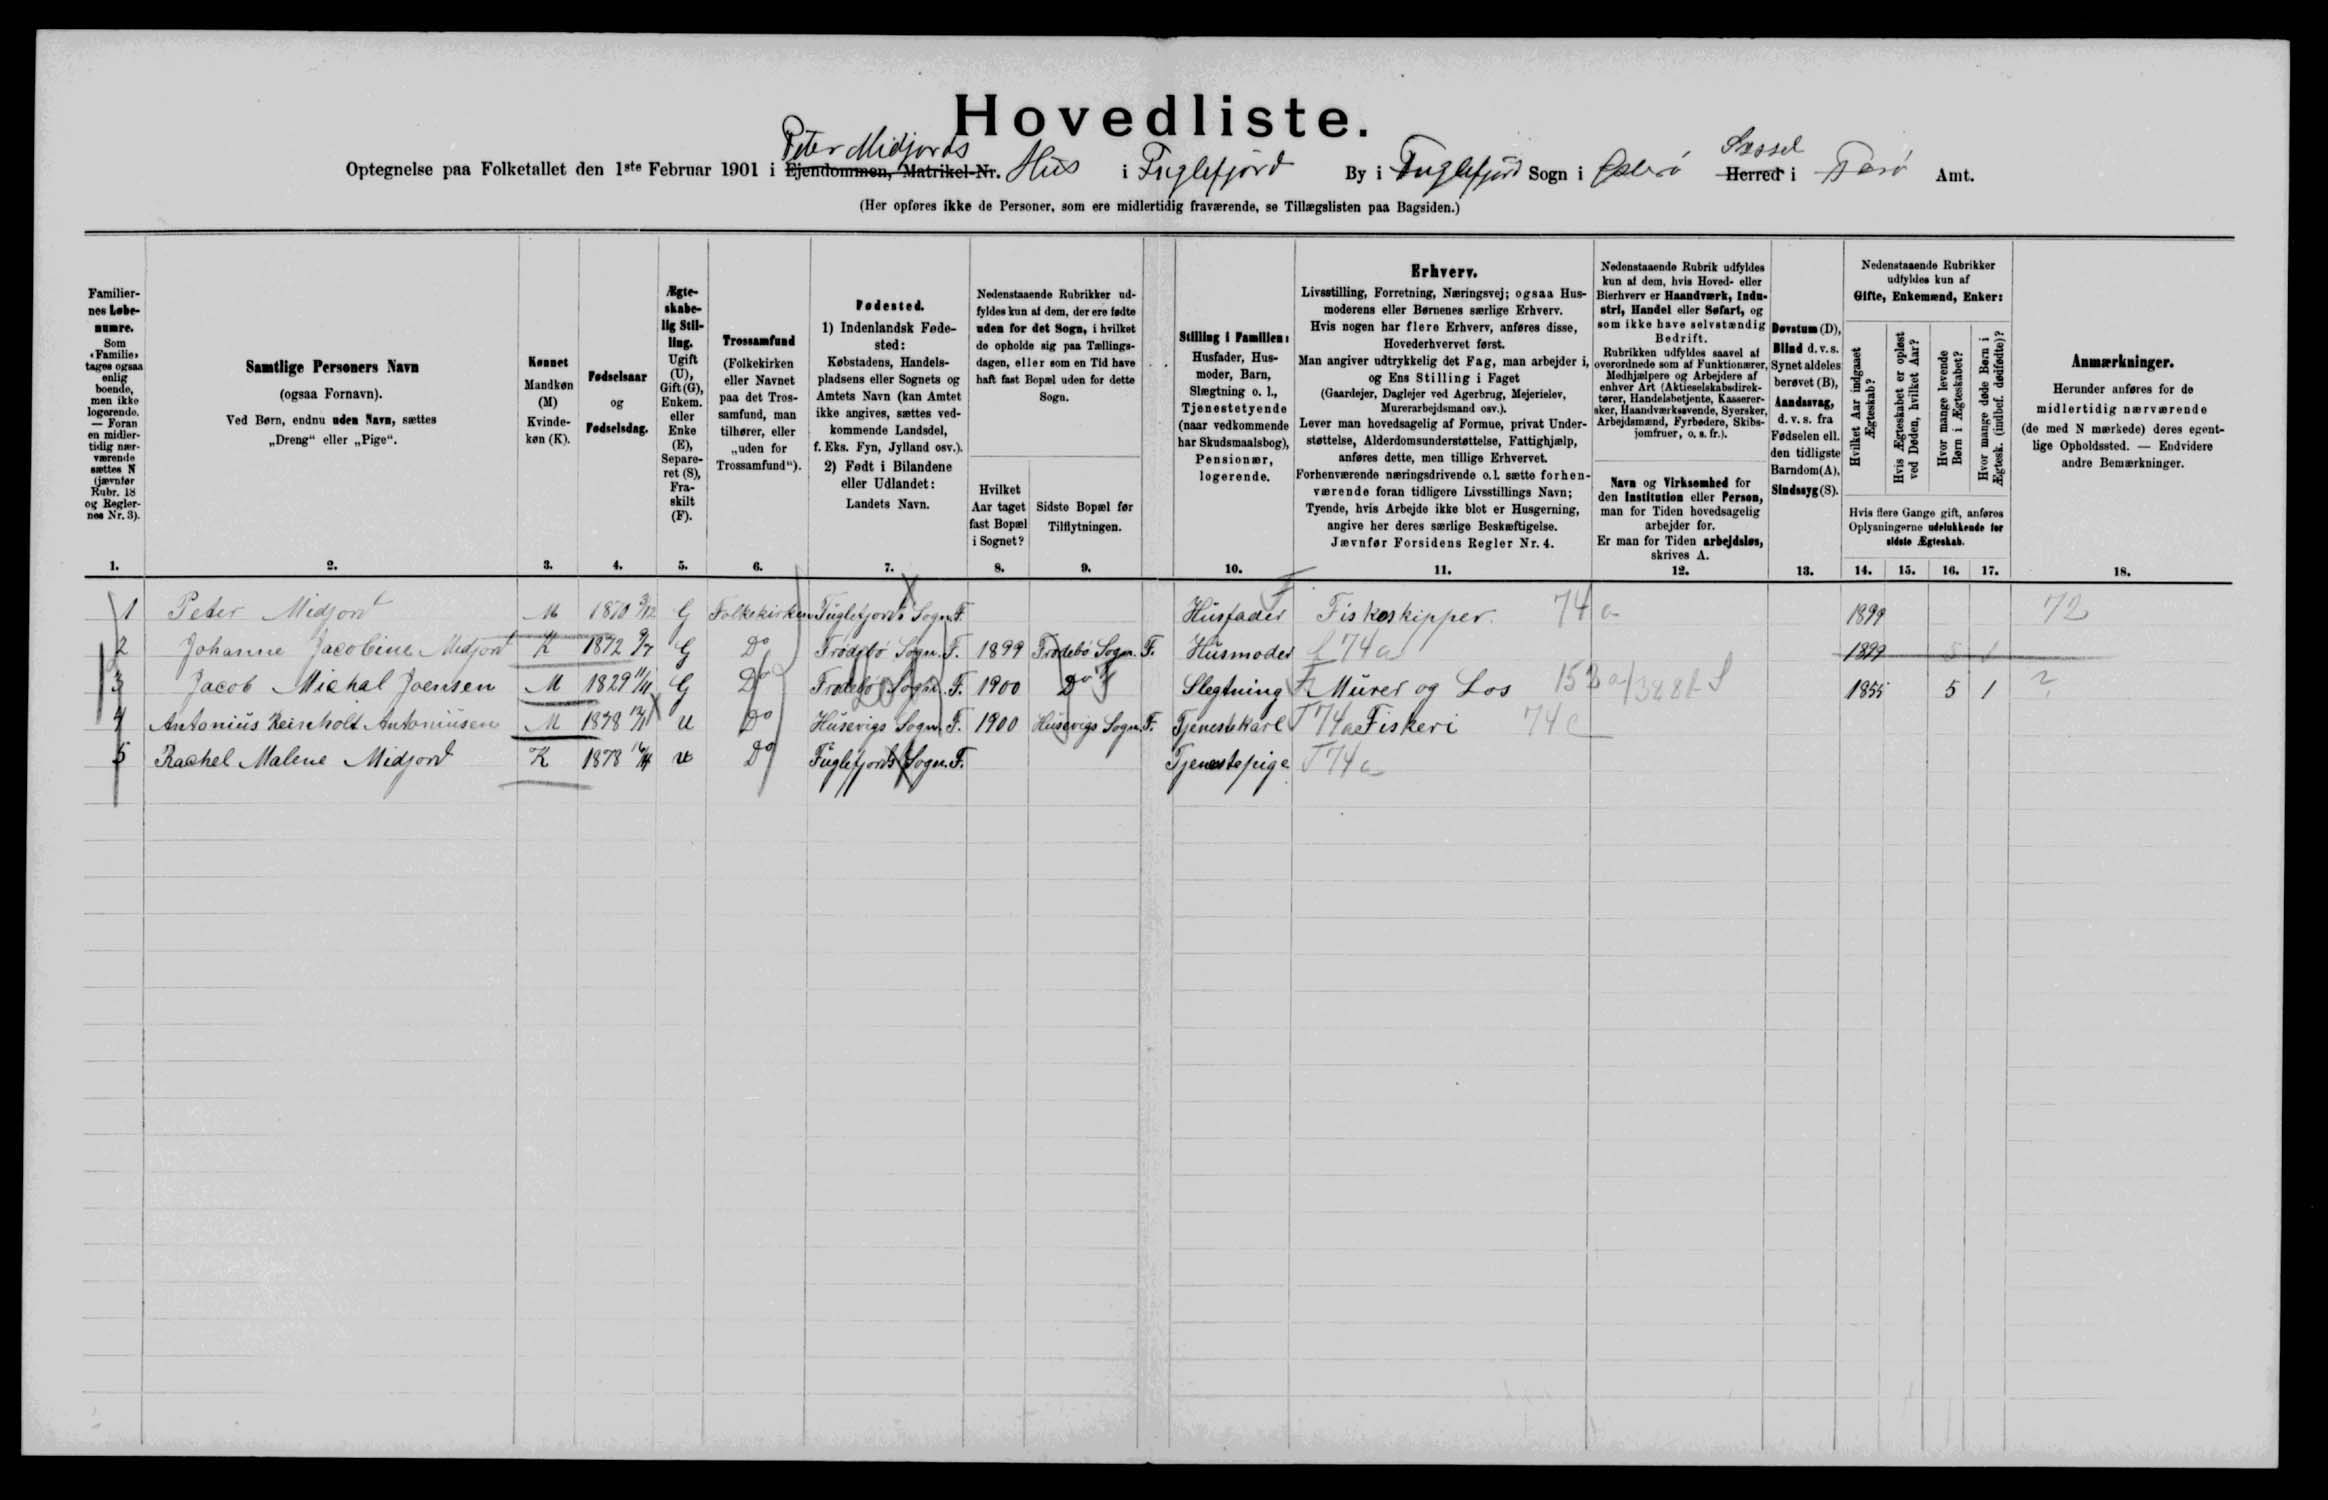 Hovedliste.
Peter Midjords Sýssel
Optegnelse paa Folketallet den 1ste Februar 1901 i Ejendommen, Matrikel-Nr. Hus i Fuglefjord By i Fuglefjord Sogn i Østerø Herred i Færø Amt.
(Her opføres ikke de Personer, som ere midlertidig fraværende, se Tillægslisten paa Bagsiden.)
Familier-
nes Løbe-
numre.
Som
»Familie»
tages ogsaa
enlig
boende,
men ikke
logerende.
— Foran
en midler-
tidig nær-
værende
sættes N
(jævnfør
Rubr. 18
og Regler-
nes Nr. 3).
1.
Samtlige Personers Navn
(ogsaa Fornavn).
Ved Børn, endnu uden Navn, sættes
„Dreng“ eller „Pige“.
2.
Kønnet
Mandkøn
(M)
Kvinde-
køn (K).
3.
Fødselsaar
og
Fødselsdag.
4.
Ægte-
skabe-
lig Stil-
ling.
Ugift
(U),
Gift (G),
Enkem.
eller
Enke
(E),
Separe-
ret (S),
Fra-
skilt
(F).
5.
Trossamfund
(Folkekirken
eller Navnet
paa det Tros-
samfund, man
tilhører, eller
„uden for
Trossamfund“).
6.
Fødested.
1) Indenlandsk Føde-
sted:
Købstadens, Handels-
pladsens eller Sognets og
Amtets Navn (kan Amtet
ikke angives, sættes ved-
kommende Landsdel,
f. Eks. Fyn, Jylland osv.).
2) Født i Bilandene
eller Udlandet:
Landets Navn.
7.
Nedenstaaende Rubrikker ud-
fyldes kun af dem, der ere fødte
uden for det Sogn, i hvilket
de opholde sig paa Tællings-
dagen, eller som en Tid have
haft fast Bopæl uden for dette
Sogn.
Hvilket
Aar taget
fast Bopæl
i Sognet?
8.
Sidste Bopæl før
Tilflytningen.
9.
Stilling i Familien:
Husfader, Hus-
moder, Barn,
Slægtning o. l.,
Tjenestetyende
(naar vedkommende
har Skudsmaalsbog),
Pensionær,
logerende.
10.
Erhverv.
Livsstilling, Forretning, Næringsvej; ogsaa Hus-
moderens eller Børnenes særlige Erhverv.
Hvis nogen har flere Erhverv, anføres disse,
Hovederhvervet først.
Man angiver udtrykkelig det Fag, man arbejder i,
og Ens Stilling i Faget
(Gaardejer, Daglejer ved Agerbrug, Mejerielev,
Murerarbejdsmand osv.).
Lever man hovedsagelig af Formue, privat Under-
støttelse, Alderdomsunderstøttelse, Fattighjælp,
anføres dette, men tillige Erhvervet.
Forhenværende næringsdrivende o. l. sætte forhen-
værende foran tidligere Livsstillings Navn;
Tyende, hvis Arbejde ikke blot er Husgerning,
angive her deres særlige Beskæftigelse.
Jævnfør Forsidens Regler Nr. 4.
11.
Nedenstaaende Rubrik udfyldes
kun af dem, hvis Hoved- eller
Bierhverv er Haandværk, Indu-
stri, Handel eller Søfart, og
som ikke have selvstændig
Bedrift.
Rubrikken udfyldes saavel af
overordnede som af Funktionærer,
Medhjælpere og Arbejdere af
enhver Art (Aktieselskabsdirek-
tører, Handelsbetjente, Kasserer-
sker, Haandværkssvende, Syersker,
Arbejdsmænd, Fyrbødere, Skibs-
jomfruer, o. s. fr.).
Navn og Virksomhed for
den Institution eller Person,
man for Tiden hovedsagelig
arbejder for.
Er man for Tiden arbejdsløs,
skrives A.
12.
Døvstum (D),
Blind d. v. s.
Synet aldeles
berøvet (B),
Aandssvag,
d. v. s. fra
Fødselen ell.
den tidligste
Barndom (A),
Sindssyg (S).
13.
Nedenstaaende Rubrikker
udfyldes kun af
Gifte, Enkemænd, Enker:
Hvilket Aar indgaaet
Ægteskab?
Hvis Ægteskabet er opløst
ved Døden, hvilket Aar?
Hvor mange levende
Børn i Ægteskabet?
Hvor mange døde Børn i
Ægtesk. (indbef. dødfødte)?
Hvis flere Gange gift, anføres
Oplysningerne udelukkende for
sidste Ægteskab.
14. 15. 16. 17.
Anmærkninger.
Herunder anføres for de
midlertidig nærværende
(de med N mærkede) deres egent-
lige Opholdssted. — Endvidere
andre Bemærkninger.
18.
1 Peter Midjord M 1870 3/12 G Folkekirken Fuglefjords Sogn. F. Husfader Fiskeskipper. 74 a 1899 72
2 Johanne Jacobine Midjord K 1872 9/7 G Do Frodebø Sogn. F. 1899 Frodebø Sogn. F. Husmoder f 74 a 1899 5 1
3 Jacob Michal Joensen M 1829 11/11 G Do Frodebø Sogn. F. 1900 Do Slegtning Murer og Los 153 a 1855 5 1 ?
4 Antonius Reinholt Antoniusen M 1878 U Do Husevigs Sogn. F. 1900 Husevigs Sogn. F. Tjenestekarl T 74a Fiskeri 74 c
5 Rachel Malene Midjord K 1878 U Do Fuglefjords Sogn. F. Tjenestepige T 74 a